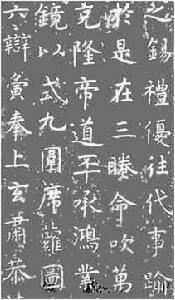 之錫禮優往代事踰
於是在三勝命吹萬
克隆帝道丕承鴻業
鏡以式九圍席蘿圖
六辯齎奉上玄肅恭